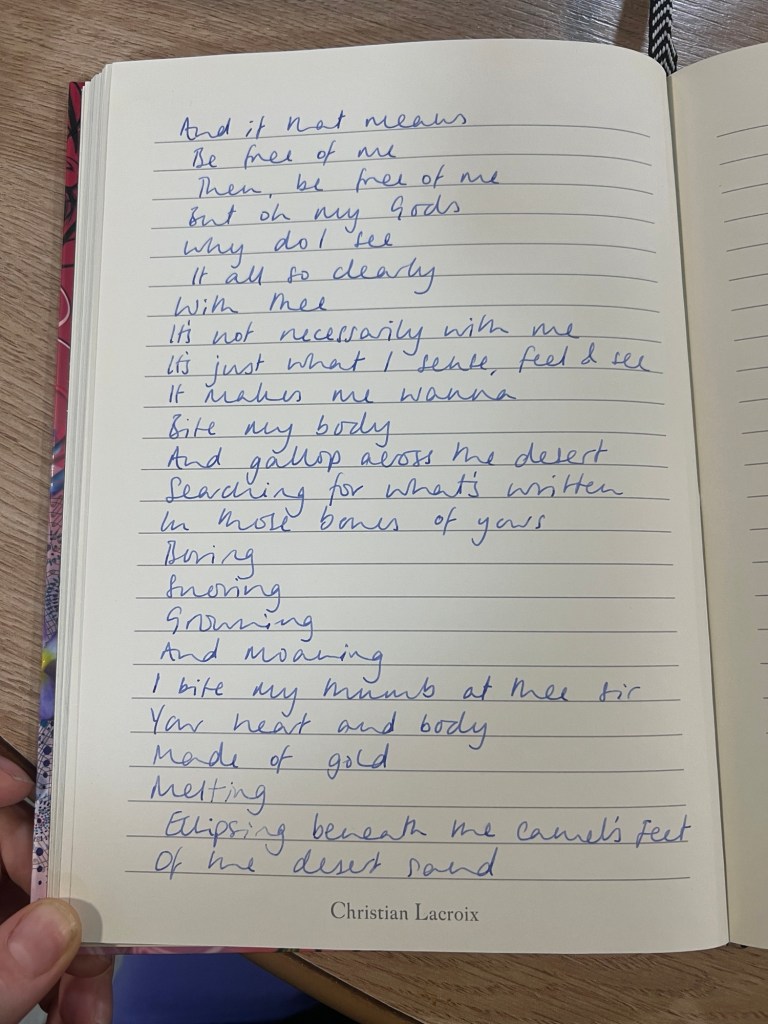 And if that means
Be free of me
Then, be free of me
But oh my Gods
Why do I see
It all so clearly
With thee
It's not necessarily with me
It's just what I sense, feel & see
It makes me wanna
Bite my body
And gallop across the desert
Searching for what's written
In those bones of yours
Boring
Snoring
Groaning
And moaning
I bite my thumb at thee sir
Your heart and body
Made of gold
Melting
Ellipsing beneath the camel's feet
Of the desert sand
Christian Lacroix